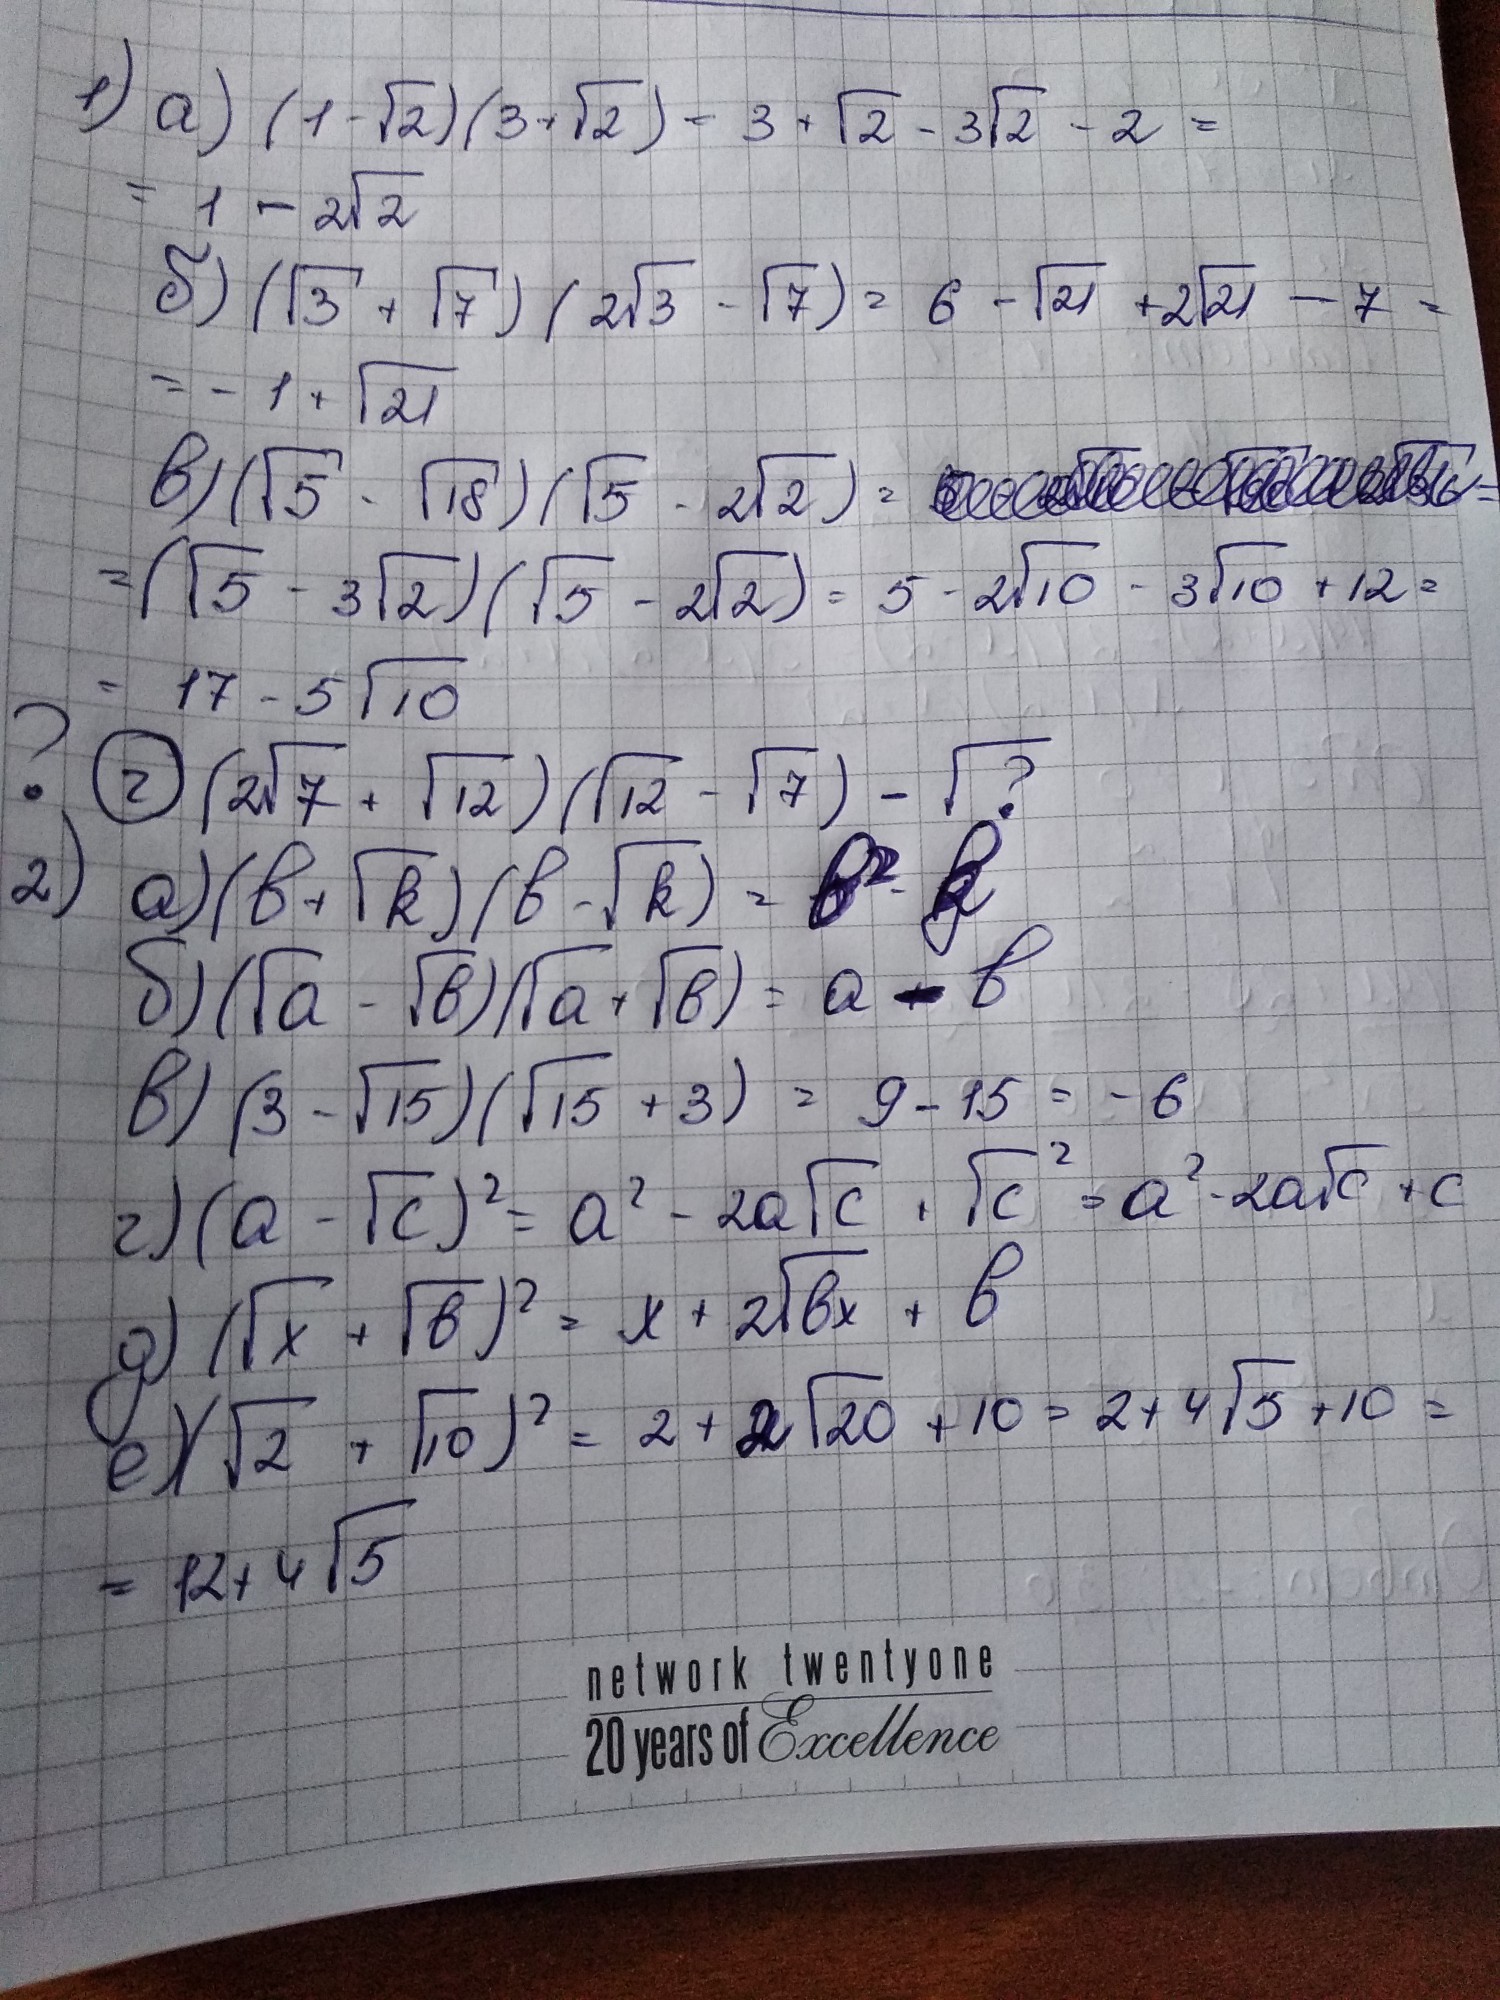 1) а) (1 - √2)(3 + √2) = 3 + √2 - 3√2 - 2 =
= 1 - 2√2
б) (√3 + √7)(2√3 - √7) = 6 - √21 + 2√21 - 7 =
= - 1 + √21
в) (√5 - √18)(√5 - 2√2) = =
= (√5 - 3√2)(√5 - 2√2) = 5 - 2√10 - 3√10 + 12 =
= 17 - 5√10
? г) (2√7 + √12)(√12 - √7) - √?
2) а) (в + √k)(в - √k) = в² - k
б) (√а - √в)(√а + √в) = а - в
в) (3 - √15)(√15 + 3) = 9 - 15 = - 6
г) (а - √с)² = а² - 2а√с + √с² = а² - 2а√с + с
д) (√х + √в)² = х + 2√вх + в
е) (√2 + √10)² = 2 + 2√20 + 10 = 2 + 4√5 + 10 =
= 12 + 4√5
network twentyone
20 years of Excellence